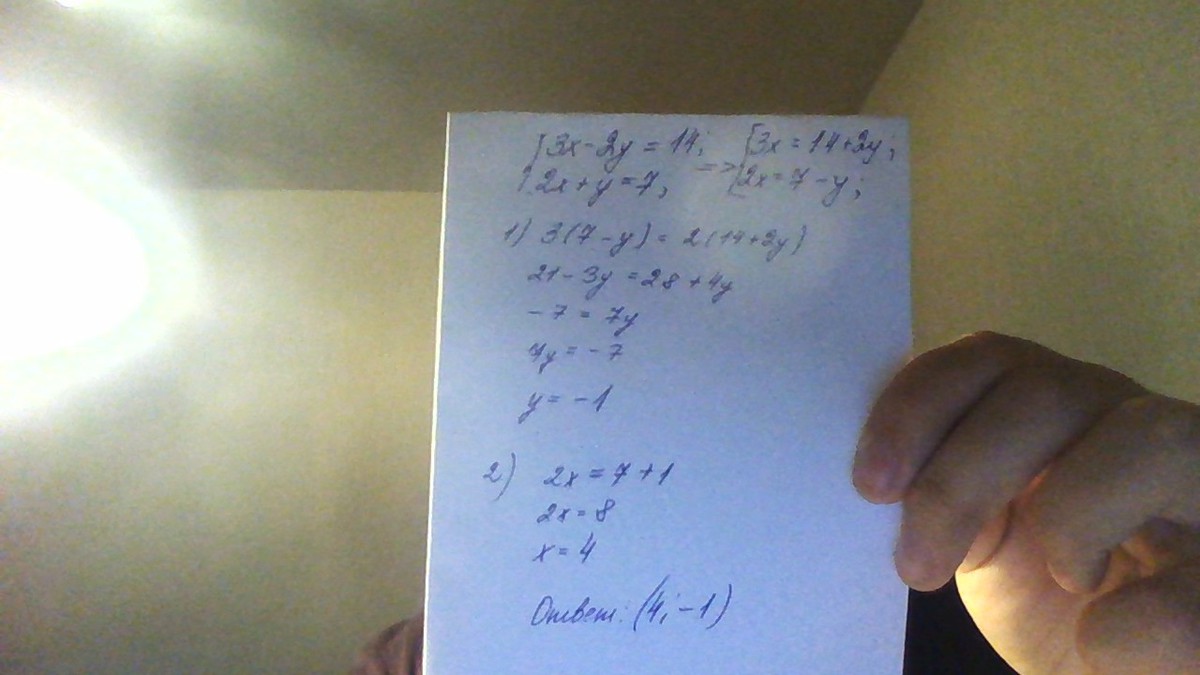 {3x-2y=14; => {3x=14+2y;
{2x+y=7, {2x=7-y;
1) 3(7-y)=2(14+2y)
21-3y=28+4y
-7=7y
7y=-7
y=-1
2) 2x=7+1
2x=8
x=4
Ответ: (4;-1)